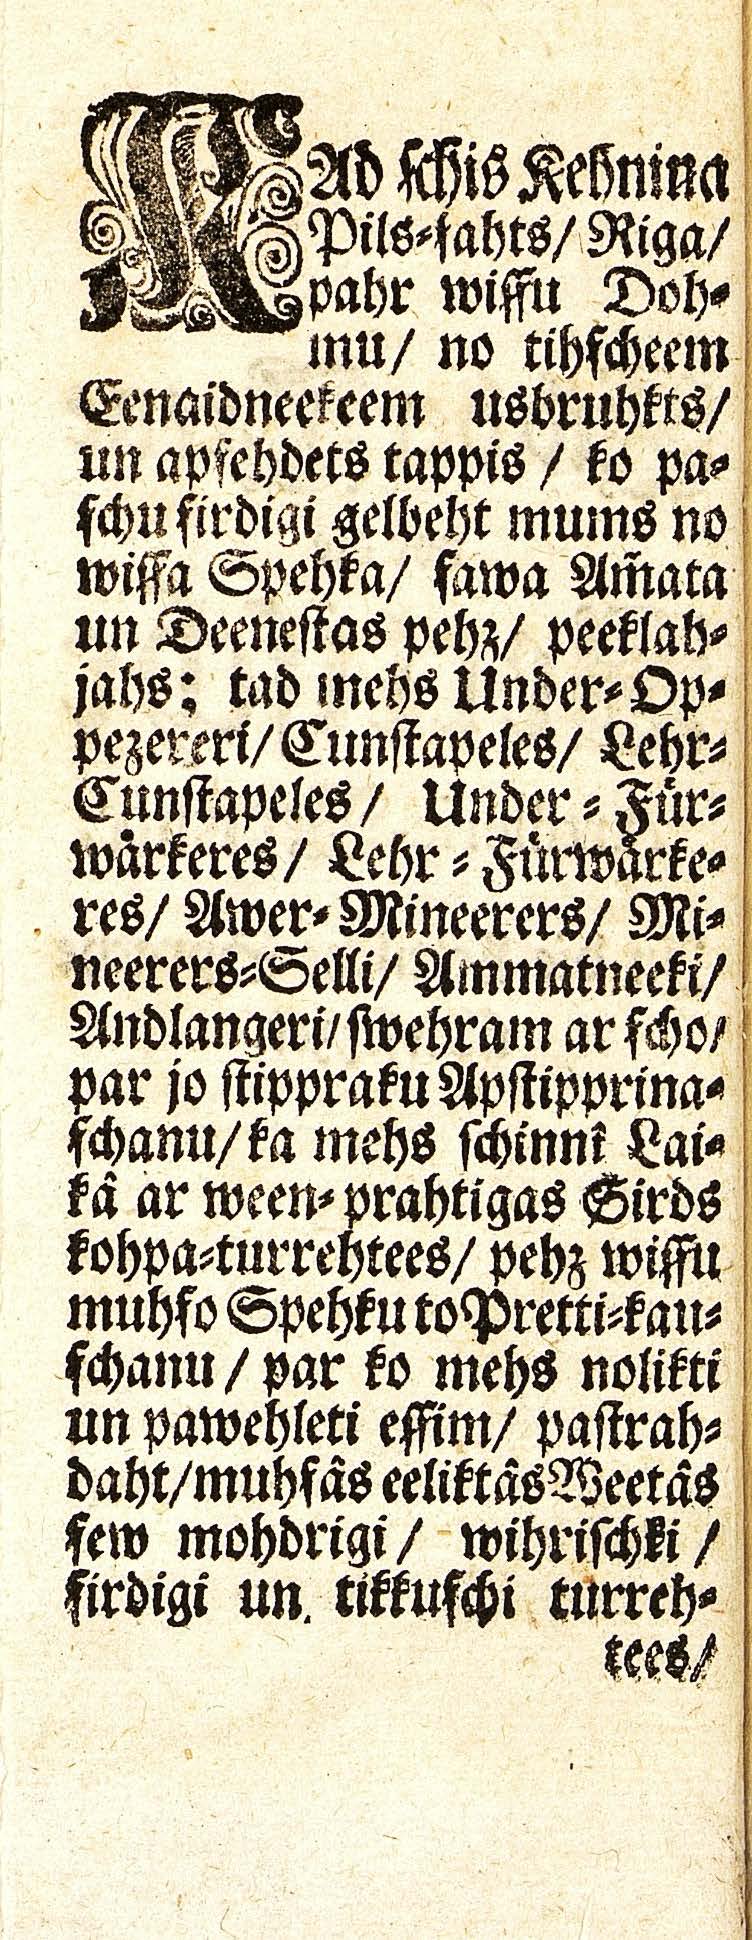 KAd ſchis Kehnina
Pils⸗ſahts/ Riga/
pahr wiſſu Doh⸗
mu/ no tihſcheem
Eenaidneekeem usbruhkts/
un apſehdets tappis / ko pa⸗
ſchu ſirdigi gelbeht mums no
wiſſa Spehka/ ſawa Am̃ata
un Deeneſtas pehz/ peeklah⸗
jahs; tad mehs Under⸗Op⸗
pezereri/ Cunſtapeles/ Lehr⸗
Cunſtapeles / Under ⸗ Fuͤr⸗
waͤrkeres / Lehr ⸗ Fuͤrwaͤrke⸗
res/ Awer⸗ Mineerers/ Mi⸗
neerers⸗Selli/ Ammatneeki/
Andlangeri/ ſwehram ar ſcho/
par jo ſtippraku Apſtipprina⸗
ſchanu/ ka mehs ſchinnî Lai⸗
kâ ar ween⸗ prahtigas Sirds
kohpa⸗turrehtees/ pehz wiſſu
muhſo Spehku to Pretti⸗kau⸗
ſchanu / par ko mehs nolikti
un pawehleti eſſim/ paſtrah⸗
daht/ muhſâs eeliktâs Weetâs
ſew mohdrigi / wihriſchki /
ſirdigi un tikkuſchi turreh⸗
tees/